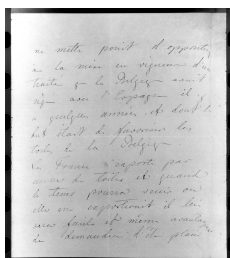 ne mette point d'opposition
à la mise en vigueur d'un
traité q. la Belgique avait
signé avec l'Espagne il y
a quelques années, et dont le
but était de favoriser les
toiles de la Belgique
La France n'exporte pas
de toiles et quand
le tems pourra venir on
elle en exporterait il lui
sera facile et même
de demander d'être placée